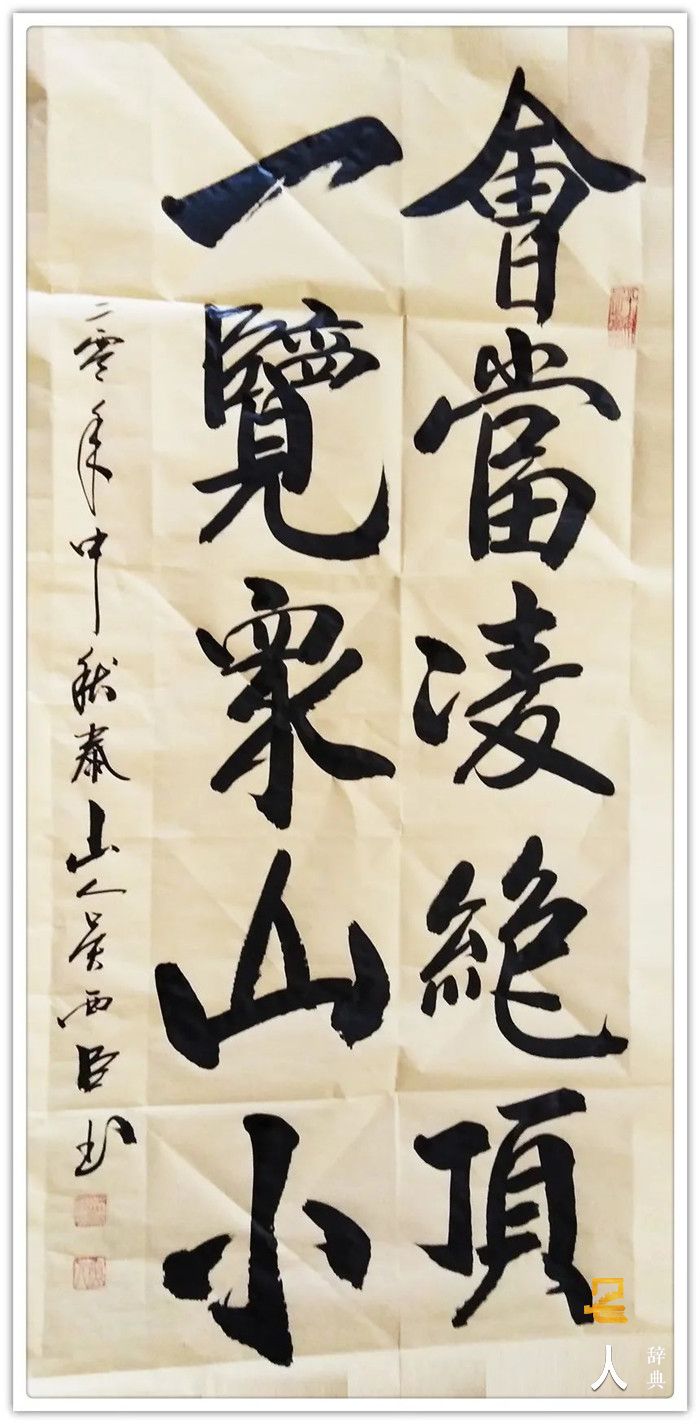 會當凌絕頂
一覽衆山小
二零年中秋泰山人吴西臣书
名人
辞典